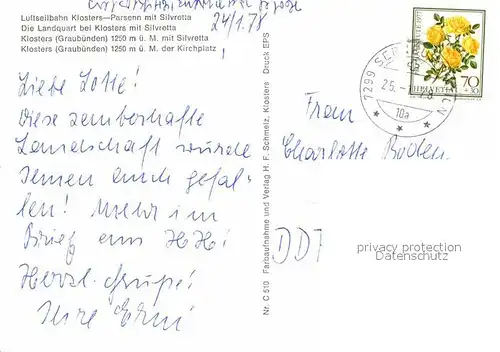 24/1.78
Luftseilbahn Klosters—Parsenn mit Silvretta
Die Landquart bei Klosters mit Silvretta
Klosters (Graubünden) 1250 m ü. M. mit Silvretta
Klosters (Graubünden) 1250 m ü. M. der Kirchplatz
Liebe Lotte!
Diese zauberhafte
Landschaft würde
Ihnen auch gefal-
len! Mehr im
Brief
Herzl. Grüße!
Ihre Erni
Nr. C 510 Farbaufnahme und Verlag H. F. Schmelz, Klosters Druck EPS
7299
25.
10a
HELVETIA
70
Frau
Charlotte Boden
DDR
privacy protection
Datenschutz